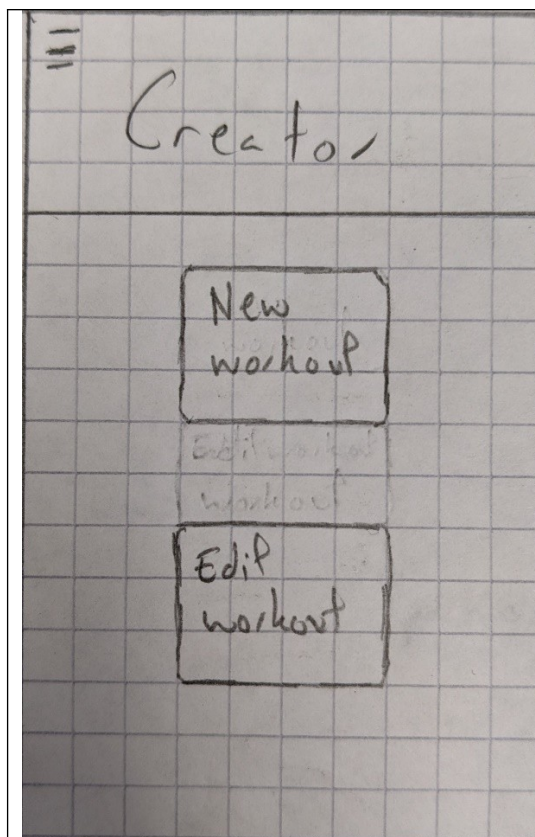 Creator
New
workout
Edit workout
workout
Edit
workout